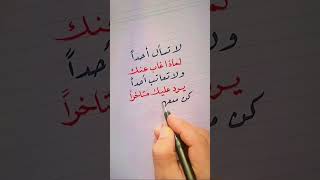 لا تسأل أحداً
لماذا غاب عنك
ولا تعاتب أحداً
يرد عليك متاخراً
كن